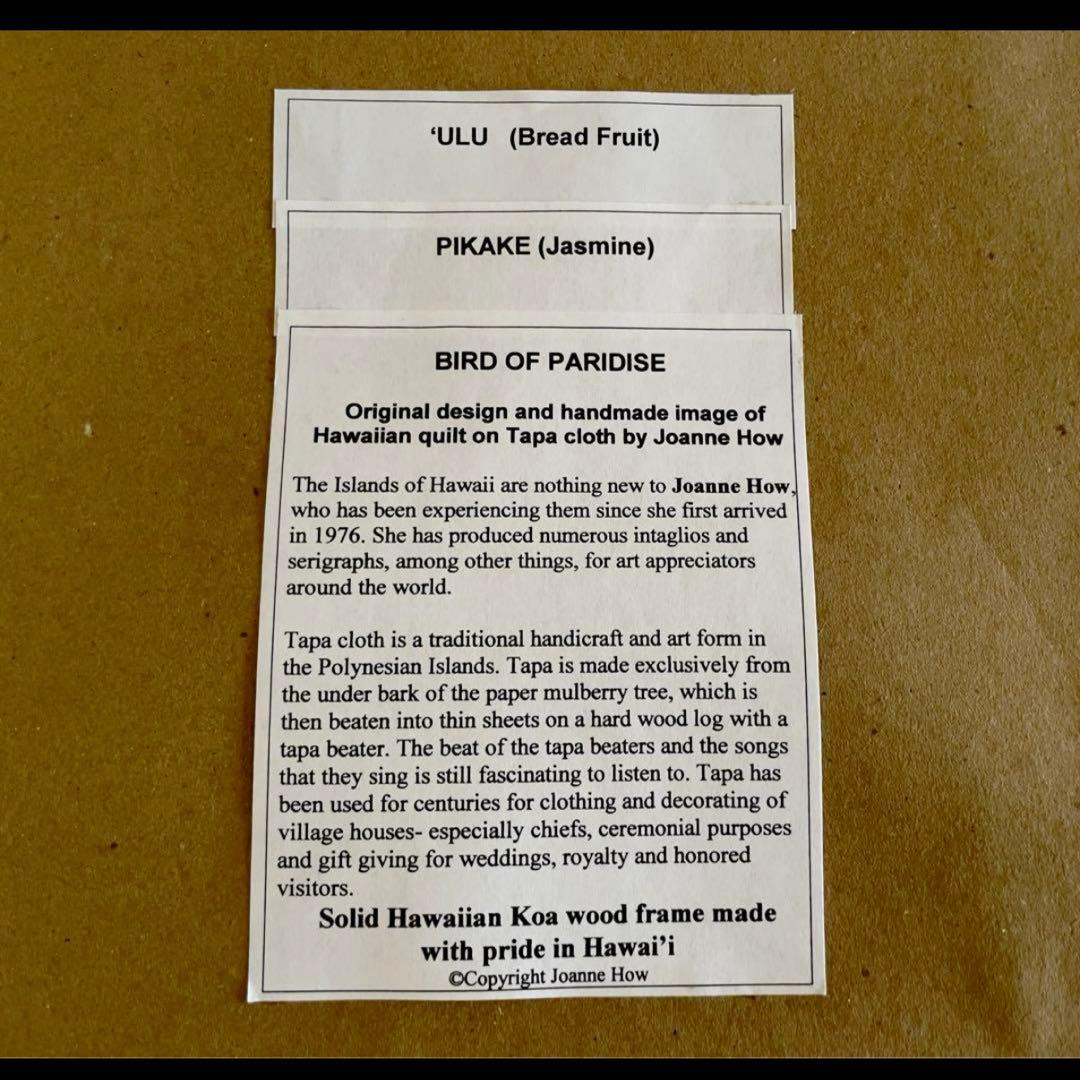 ‘ULU (Bread Fruit)
PIKAKE (Jasmine)
BIRD OF PARIDISE
Original design and handmade image of
Hawaiian quilt on Tapa cloth by Joanne How
The Islands of Hawaii are nothing new to Joanne How,
who has been experiencing them since she first arrived
in 1976. She has produced numerous intaglios and
serigraphs, among other things, for art appreciators
around the world.
Tapa cloth is a traditional handicraft and art form in
the Polynesian Islands. Tapa is made exclusively from
the under bark of the paper mulberry tree, which is
then beaten into thin sheets on a hard wood log with a
tapa beater. The beat of the tapa beaters and the songs
that they sing is still fascinating to listen to. Tapa has
been used for centuries for clothing and decorating of
village houses- especially chiefs, ceremonial purposes
and gift giving for weddings, royalty and honored
visitors.
Solid Hawaiian Koa wood frame made
with pride in Hawai’i
©Copyright Joanne How